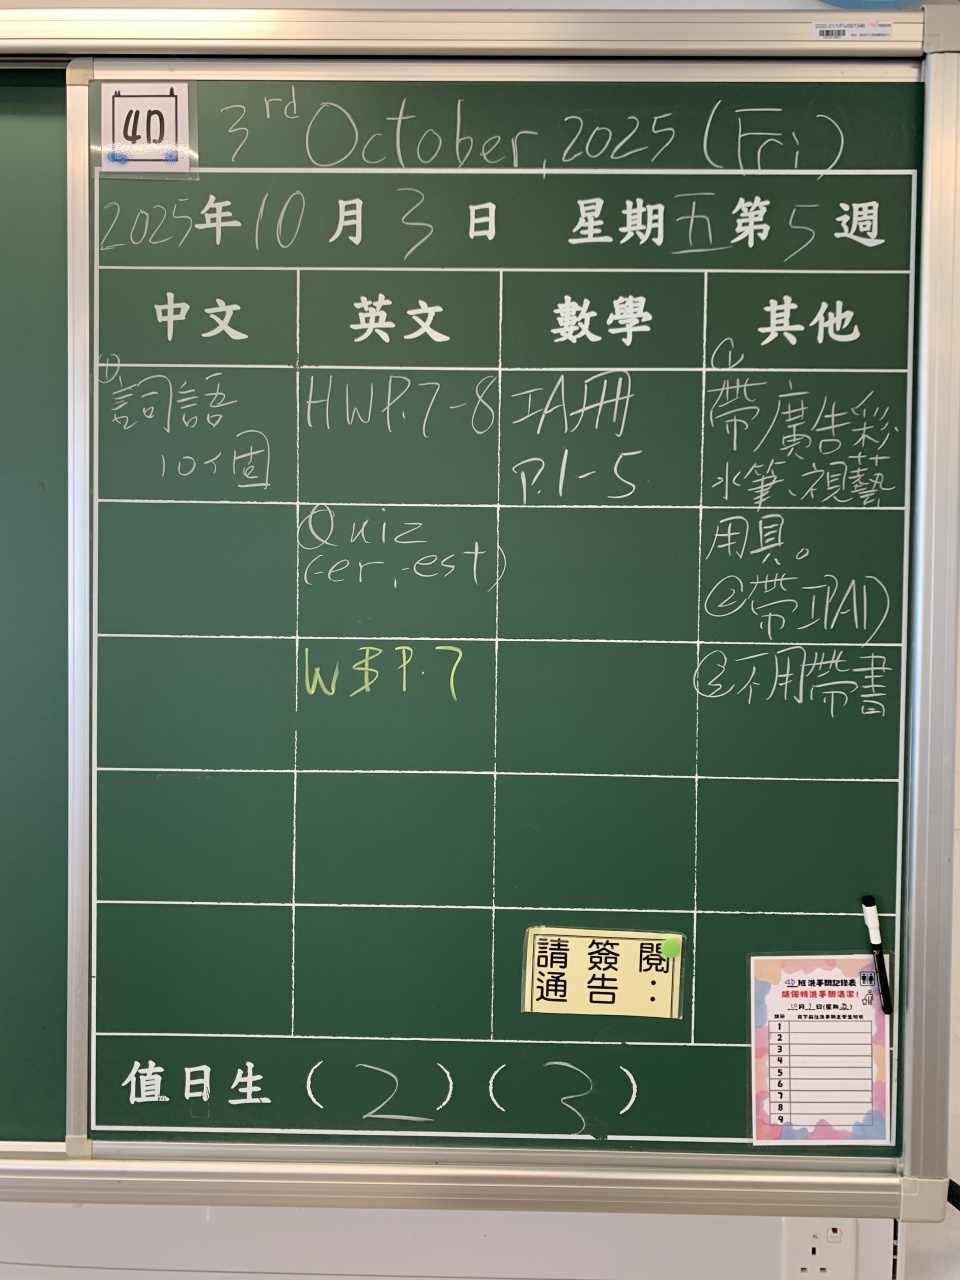 4D
3rd October, 2025 (Fri)
2025年10月3日 星期五第5週
中文 英文 數學 其他
① 詞語
10個
HW P.7-8
Quiz
(-er, -est)
WB P.7
IA冊
P.1-5
① 帶廣告彩
水筆、視藝
用具。
② 帶IPAD
③ 不用帶書
請簽閱
通告：
值日生 (2) (3)
4D班洗手間記錄表
請保持洗手間清潔!
10月3日(星期五)
1
2
3
4
5
6
7
8
9